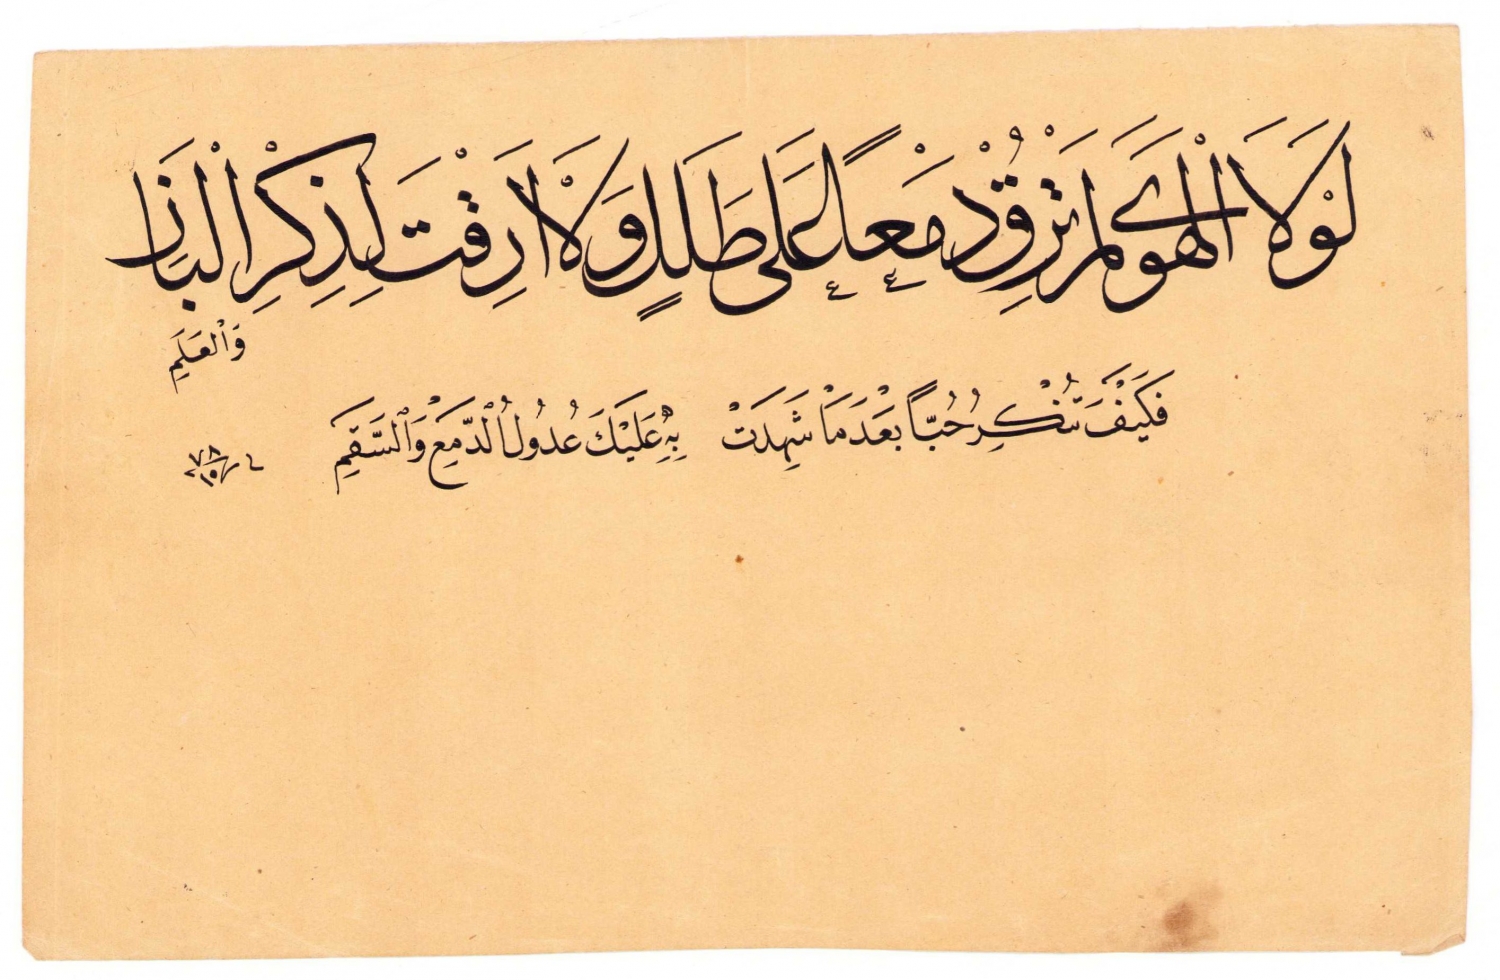 لَوْلَا الْهَوَى لَمْ تَرِقْ دَمْعًا عَلَى طَلَلٍ وَلَا أَرِقْتَ لِذِكْرِ الْبَانِ
وَالْعَلَمِ
فَكَيْفَ تُنْكِرُ حُبًّا بَعْدَمَا شَهِدَتْ بِهِ عَلَيْكَ عُدُولُ الدَّمْعِ وَالسَّقَمِ